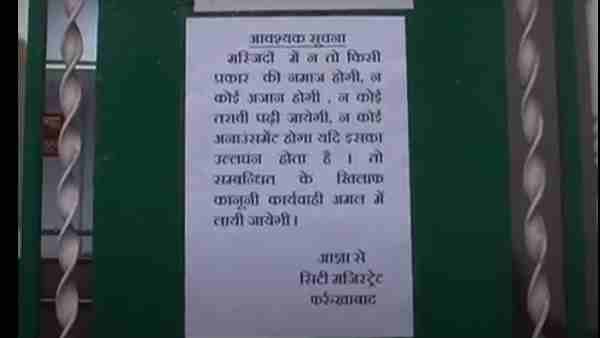 आवश्यक सूचना
मस्जिदों में न तो किसी
प्रकार की नमाज होगी, न
कोई अजान होगी , न कोई
तरावी पढ़ी जायेगी, न कोई
अनाउंसमेंट होगा यदि इसका
उल्लघन होता है । तो
सम्बन्धित के खिलाफ
कानूनी कार्यवाही अमल में
लायी जायेगी।
आज्ञा से
सिटी मजिस्ट्रेट
फर्रुखाबाद